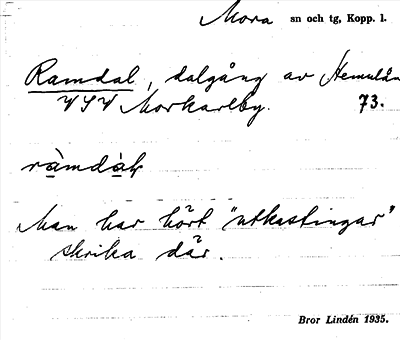 Mora sn och tg, Kopp. l.
Ramdal, dalgång av Hemulån
VSV Morkarlby. 73.
ràmdàḷ
Man har hört "utkastingar"
skrika där.
Bror Lindén 1935.